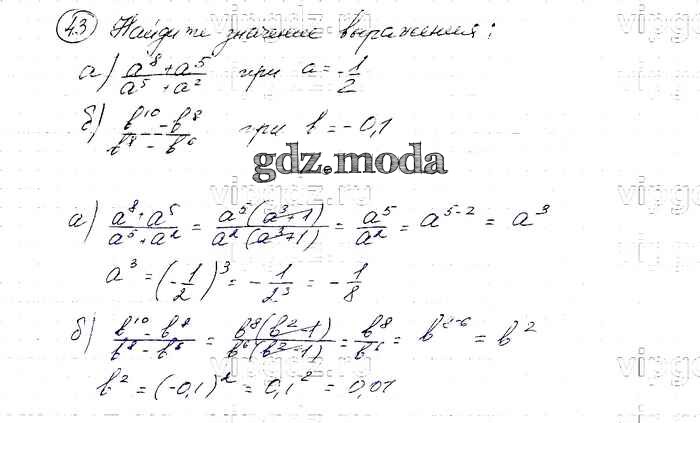 43 Найдите значение выражения:
а) (a⁸ + a⁵)/(a⁵ + a²) при a = -1/2
б) (b¹⁰ - b⁸)/(b⁸ - b⁶) при b = -0,1
gdz.moda
а) (a⁸ + a⁵)/(a⁵ + a²) = (a⁵(a³+1))/(a²(a³+1)) = a⁵/a² = a⁵⁻² = a³
a³ = (-1/2)³ = -1/2³ = -1/8
б) (b¹⁰ - b⁸)/(b⁸ - b⁶) = (b⁸(b²-1))/(b⁶(b²-1)) = b⁸/b⁶ = b⁸⁻⁶ = b²
b² = (-0,1)² = 0,1² = 0,01